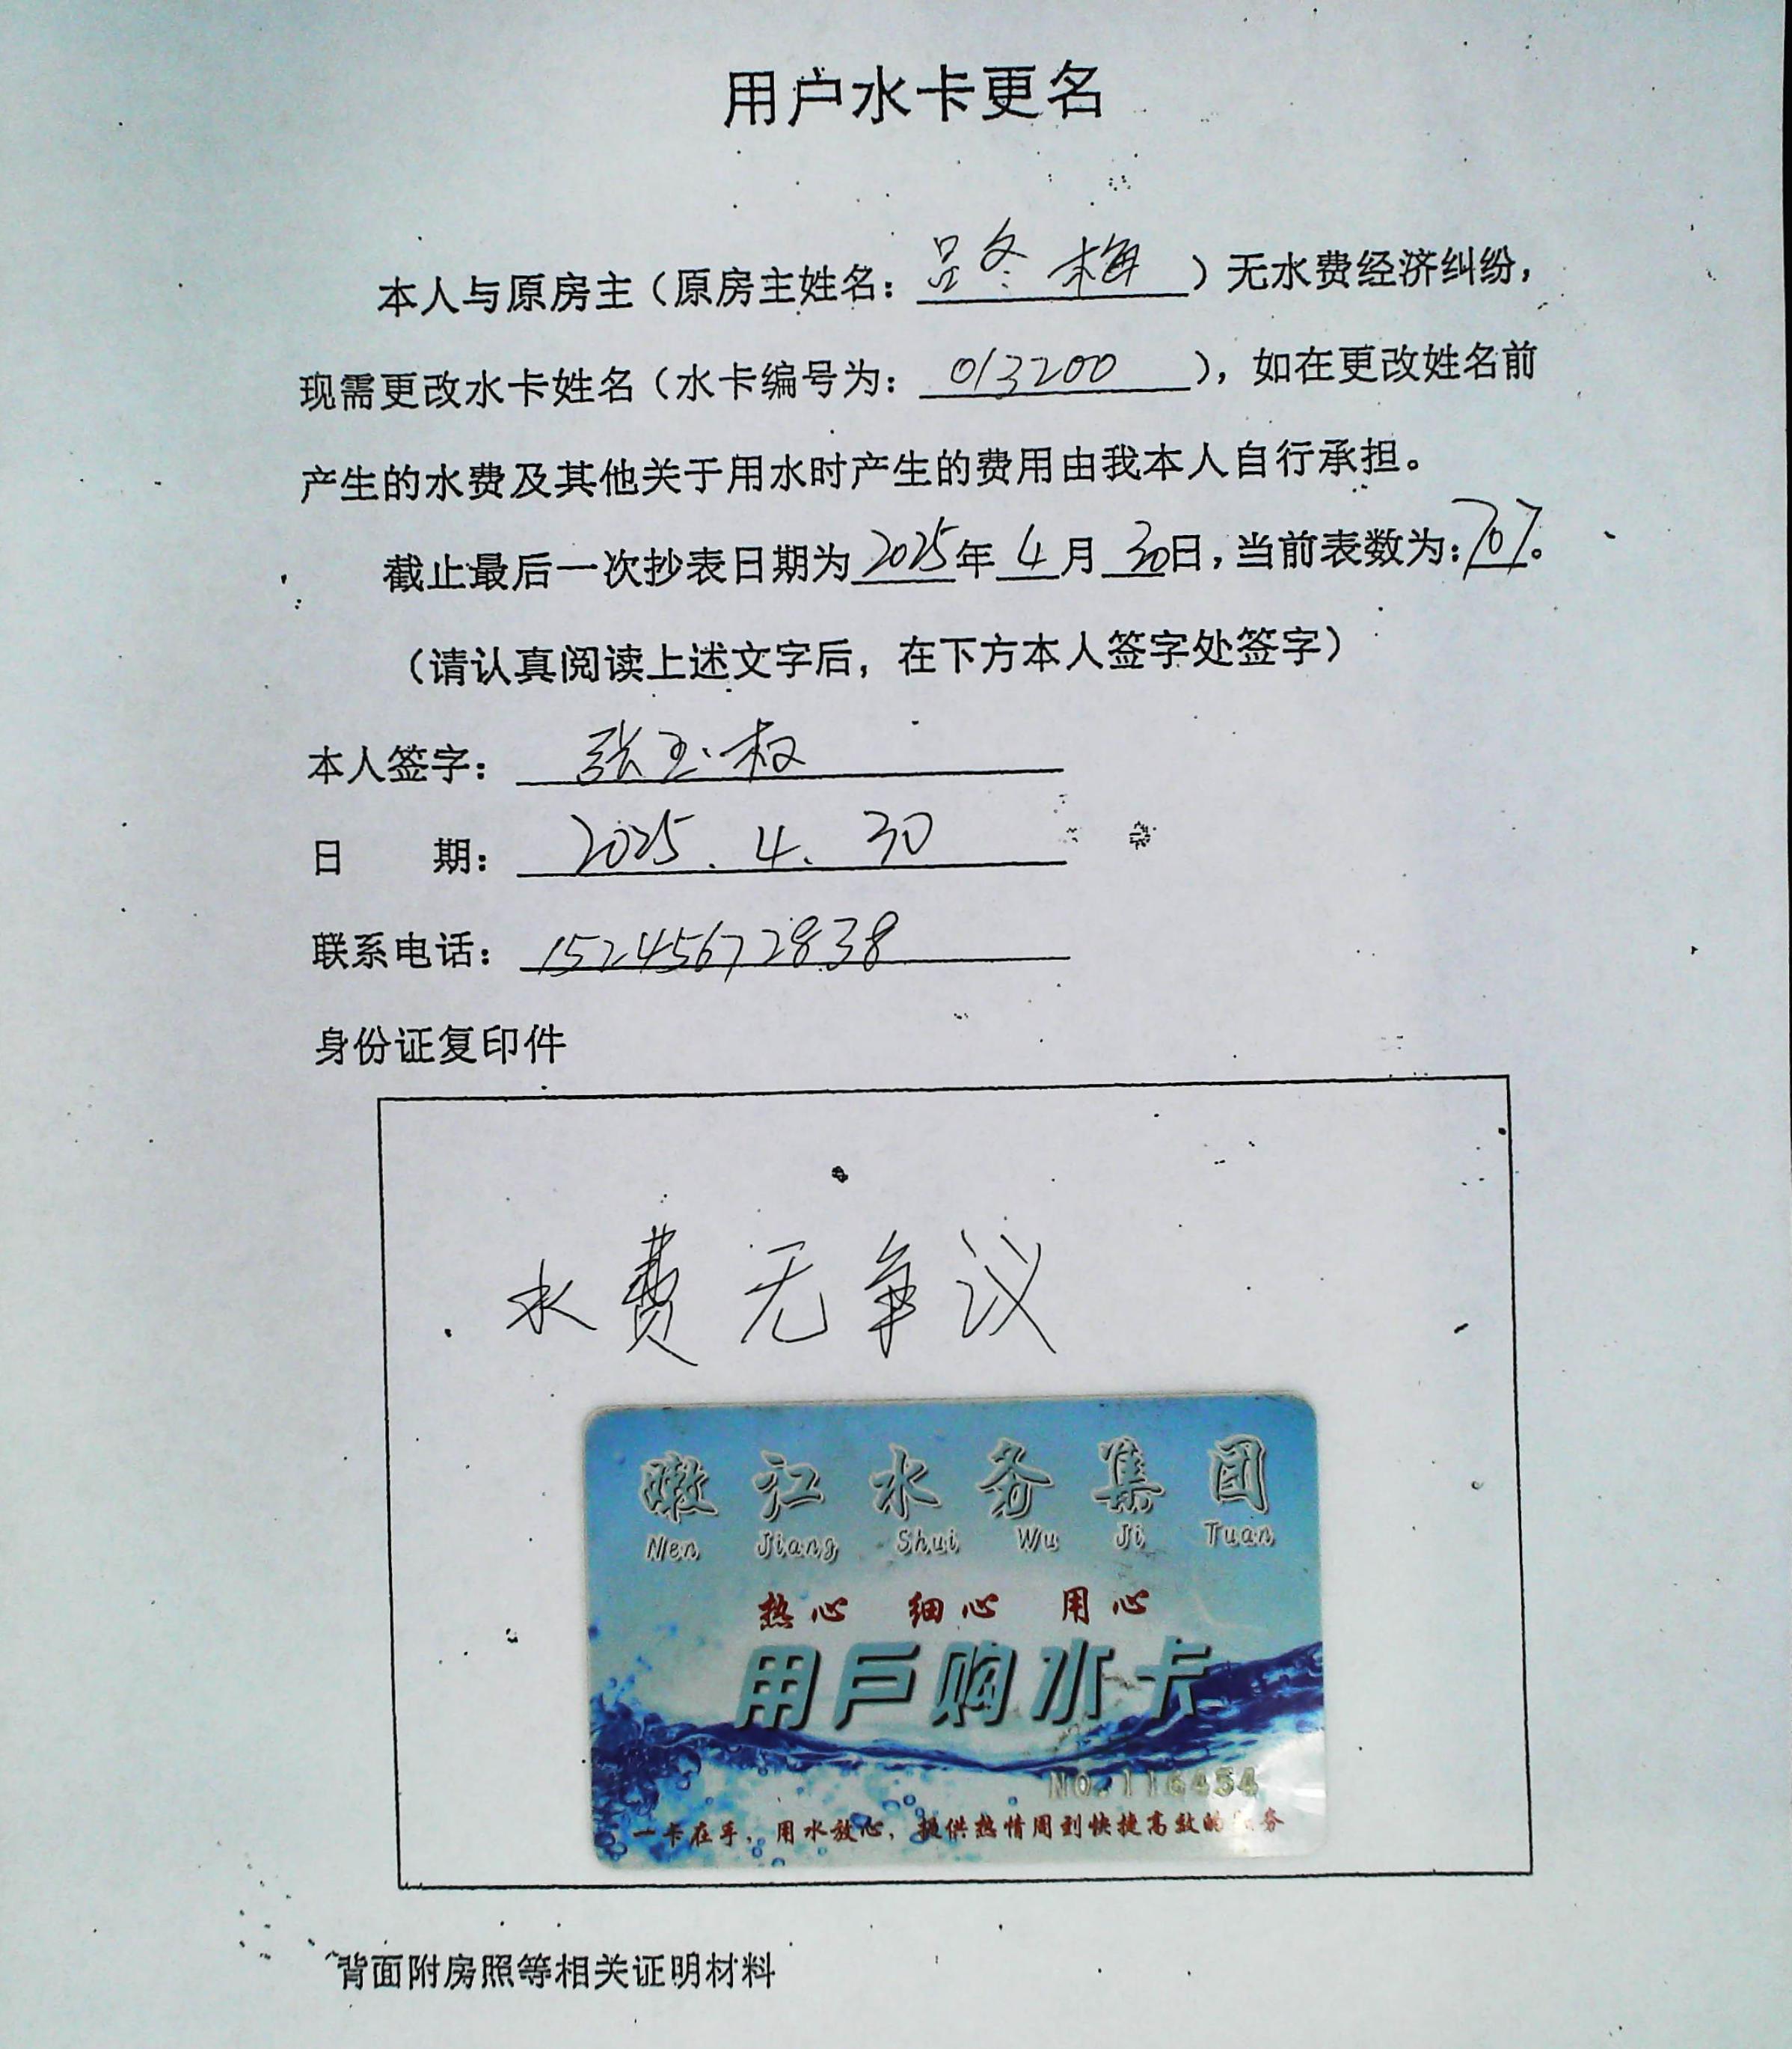 用户水卡更名
本人与原房主（原房主姓名：吕冬梅）无水费经济纠纷，
现需更改水卡姓名（水卡编号为：013200），如在更改姓名前
产生的水费及其他关于用水时产生的费用由我本人自行承担。
截止最后一次抄表日期为2025年4月30日，当前表数为：707。
（请认真阅读上述文字后，在下方本人签字处签字）
本人签字：张玉权
日 期：2025.4.30
联系电话：15245672838
身份证复印件
水费无争议
嫩江水务集团
Nen Jiang Shui Wu Ji Tuan
热心 细心 用心
用户购水卡
NO.116454
一卡在手，用水放心，提供热情周到快捷高效的 务
背面附房照等相关证明材料